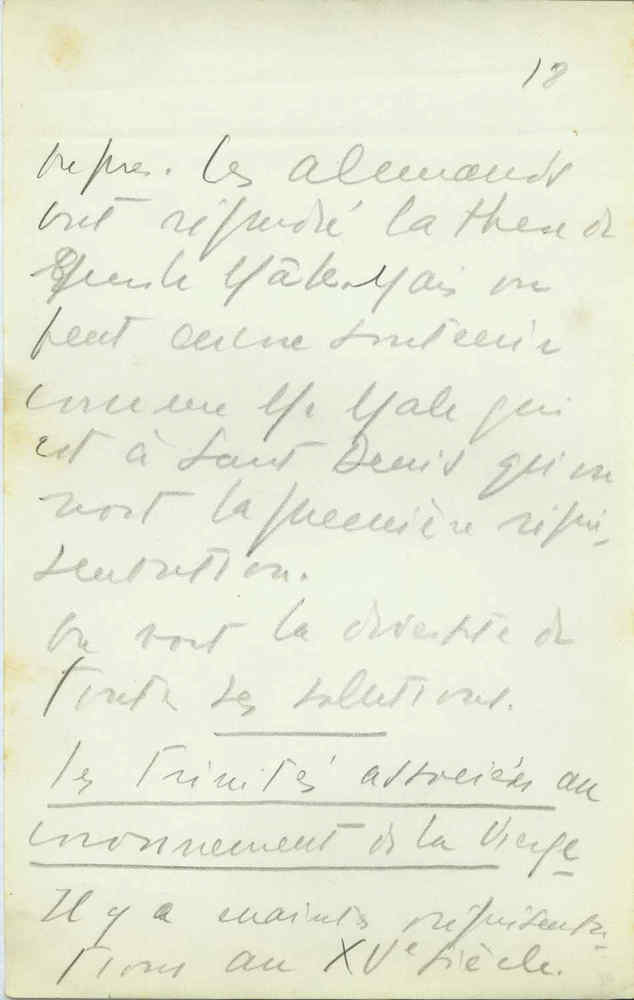 18
Les allemands
ont la these de
Mâle. Mais on
peut soutenir
comme Mr Male
est à Saint Denis qu'on
voit la première repré-
sentation.
On voit la diversité de
toute les solutions.
Les Trinités associées au
couronnement de la Vierge
Il y a maintes représenta-
tions au XVe siècle.